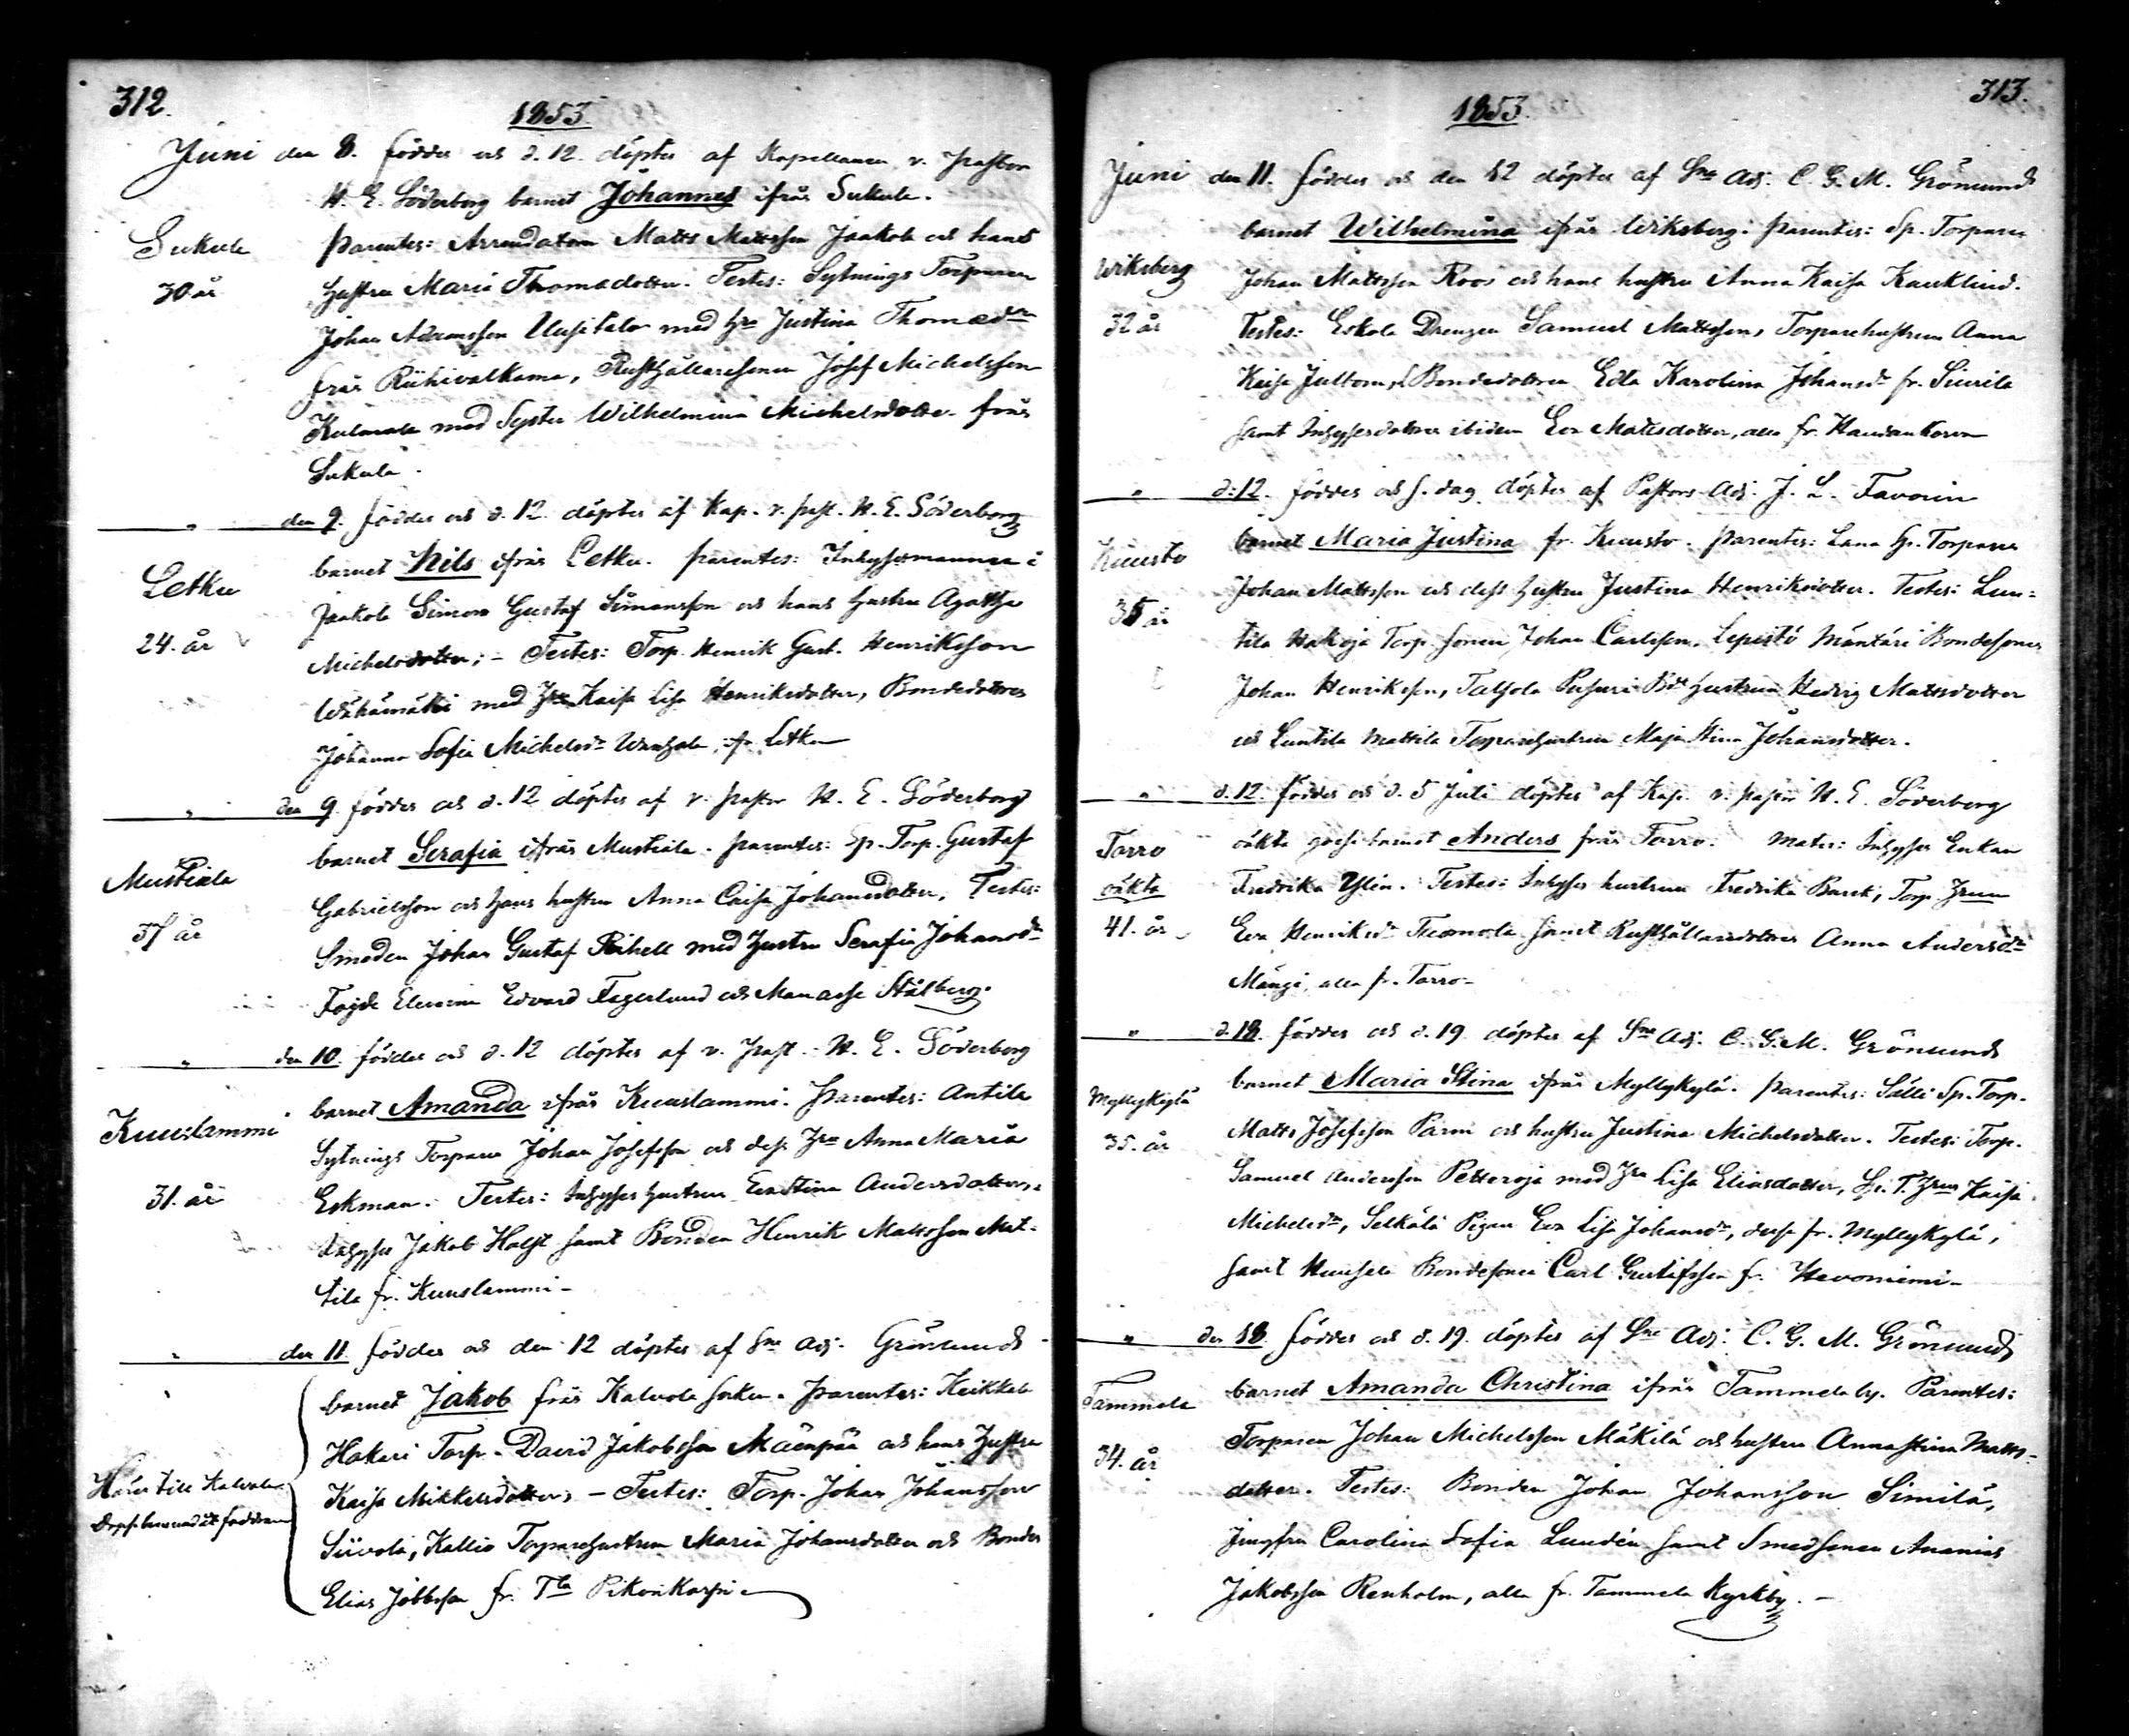 312.
1853
Juni den 8. föddes och d. 12. döptes af Kapellanen v. pastor
H. E. Söderborg barnet Johannes ifrån Sukula.
Sukula
30 år
Parentes: Arrendatorn Matts Mattsson Jaakola och hans
hustru Maria Thomædotter. Testes: Sytnings Torparen
Johan Adamsson Uusitalo med hru Justina Thomædr
från Riihivalkama, Rusthållaresonen Josef Michelsson
Kulmala med Syster Wilhelmina Michelsdotter från
Sukula.
" den 9. föddes och d. 12. döptes af Kap. v. past. H. E. Söderborg
Letku
24. år
barnet Nils ifrån Letku. Parentes: Inhysesmannen i
Jaakola Simon Gustaf Simonsson och hans hustru Agatha
Michelsdotter; – Testes: Torp. Henrik Gust. Henriksson
Wähämäki med Hru Kaisa Lisa Henriksdotter, Bondedottren
Johanna Sofia Michelsdr, fr Letku
" den 9. föddes och d. 12 döptes af v. pastor H. E. Söderborg
Mustiala
37 år
barnet Serafia ifrån Mustiala. Parentes: Sp. Torp. Gustaf
Gabrielsson och hans hustru Anna Caisa Johansdotter, Testes:
Smeden Johan Gustaf med hustru Serafia Johansdr
Edvard Fagerlund och Manasse Stålberg.
" den 10. föddes och d. 12 döptes af v. past. H. E. Söderborg
Kuuslammi
31. år
barnet Amanda ifrån Kuuslammi. Parentes: Antila
Sytnings Torparen Johan Josefsson och dess Hru Anna Maria
Eskman. Testes: Inhyses hustrun Eva Stina Andersdotter,
Inhyses Jakob Holst samt Bonden Henrik Mattsson Mat-
tila fr. Kuuslammi –
" den 11. föddes och den 12 döptes af Sne Adj. Grönlund
barnet Jakob från Kalvola socken. Parentes: Keikkala
Hakari Torp. David Jakobsson Mäenpää och hans hustru
Hörer till Kalvola
Kaisa Mikkelsdotter; – Testes: Torp. Johan Johansson
Siivola, Kallio Torparehustrun Maria Johansdotter och Bonden
Elias fr. Tla Pikonkorpi
313.
1853.
Juni den 11. föddes och den 12 döptes af Sne Adj. C. G. M. Grönlund
barnet Wilhelmina ifrån Wiksberg. Parentes: Sp. Torparen
Wiksberg
32 år
Johan Mattsson Roos och hans hustru Anna Kaisa Kauklind.
Testes: Eskola Drengen Samuel Mattsson, Torparehustrun Anna
Kaisa, Bondedottren Edla Karolina Johansdr fr. Siurila
samt Inhysesdottren ibidem Eva Mattsdotter, alla fr. Haudankorva
" d. 12. föddes och s. dag döptes af Pastors Adj. J. L. Favorin
Kuusto
35 år
barnet Maria Justina fr. Kuusto. Parentes: Lana Sp. Torparen
Johan Mattsson och dess hustru Justina Henriksdotter. Testes: Lun-
tila Hakoja Torp. sonen Johan Carlsson, Lepistö Mäntäri Bondesonen
Johan Henriksson, Talsola hustrun Hedvig Mattsdotter
och Luntila Mattila Torparehustrun Maja Stina Johansdotter.
" d. 12. föddes och d. 5 Juli döptes af Kap. v. pastor H. E. Söderborg
Torro
oäkta
41. år
oäkta gossebarnet Anders från Torro. Mater: Inhyses Enkan
Fredrika Ylén. Testes: Inhyses hustrun Fredrika Barck, Torp. Hrun
Eva Henriksdr Tuomola samt Rusthållaredottren Anna Andersdr
Mängi, alla fr. Torro –
" d. 18. föddes och d. 19 döptes af Sne Adj. C. G. M. Grönlund
Myllykylä
35. år
barnet Maria Stina ifrån Myllykylä. Parentes: Sälli Sp. Torp.
Matts Josefsson Parm och hustru Justina Michelsdotter. Testes: Torp.
Samuel Andersson Petteroja med Hru Lisa Eliasdotter, Sp. T. Hrun Kaisa
Michelsdr, Selkälä Pigan Eva Lisa Johansdr, dessa fr. Myllykylä,
samt Bondesonen Carl Gustafsson fr. Hevoniemi –
" den 18. föddes och d. 19. döptes af Sne Adj. C. G. M. Grönlund
Tammela
34. år
barnet Amanda Christina ifrån Tammela by. Parentes:
Torparen Johan Michelsson Mäkilä och hustru Anna Stina Matts-
dotter. Testes: Bonden Johan Johansson Similä,
Jungfru Carolina Sofia Lundén samt Smedsonen Ananias
Jakobsson Renholm, alla fr. Tammela Kyrkby. –